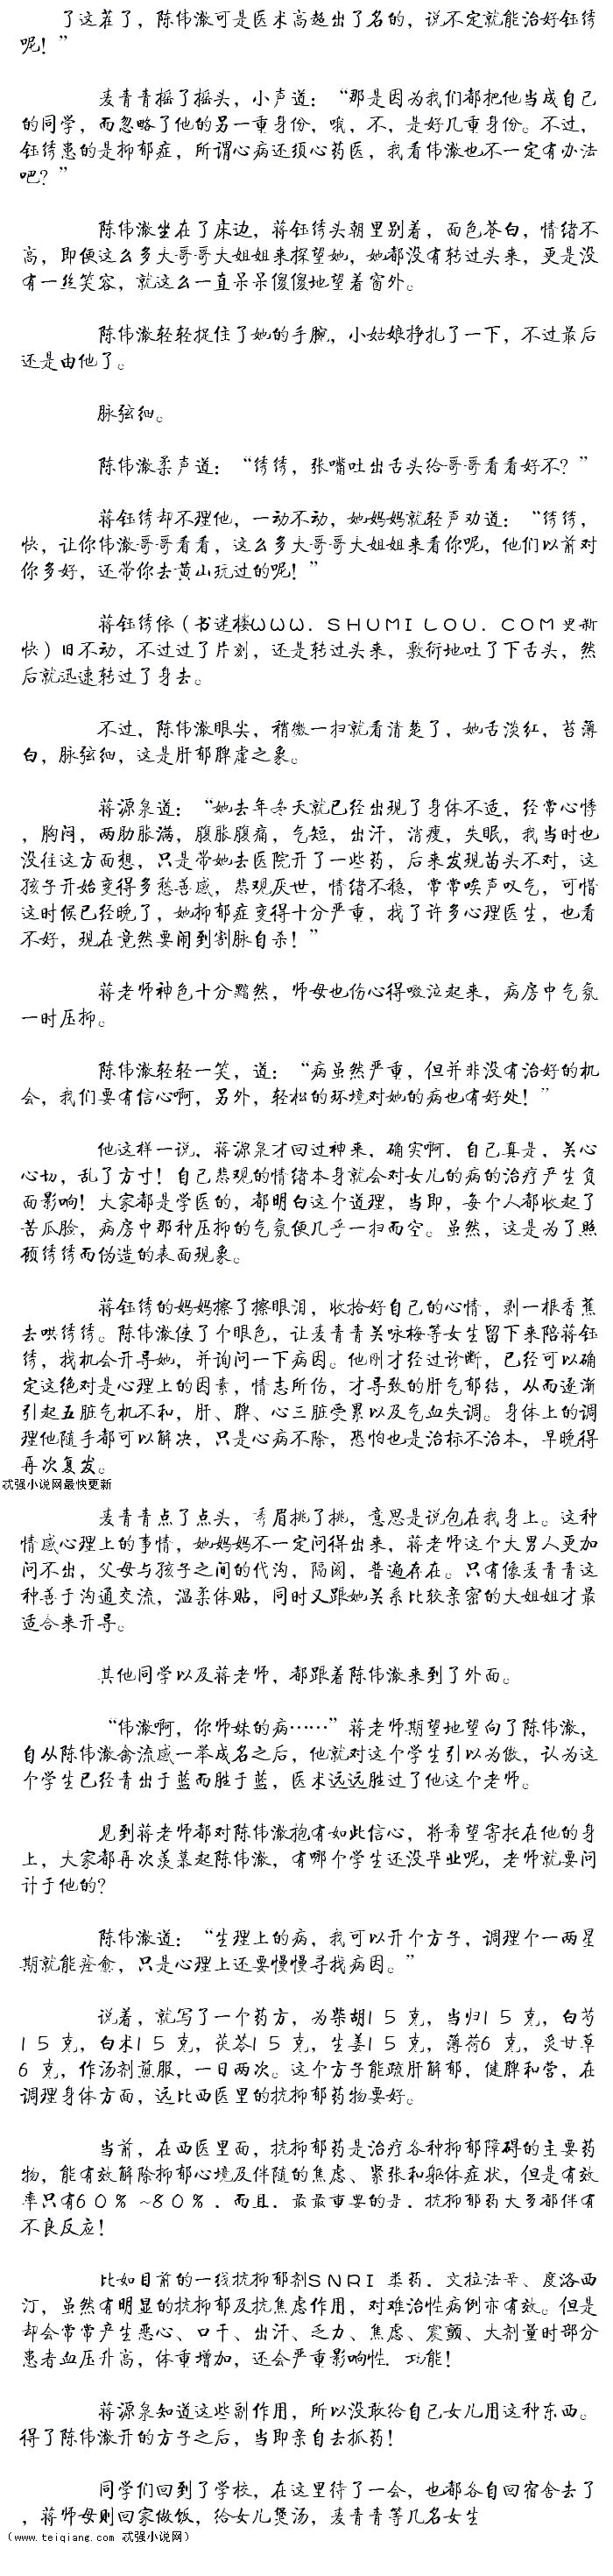 了这茬了，陈伟澈可是医术高超出了名的，说不定就能治好钰绣
呢！”
麦青青摇了摇头，小声道：“那是因为我们都把他当成自己
的同学，而忽略了他的另一重身份，哦，不，是好几重身份。不过，
钰绣患的是抑郁症，所谓心病还须心药医，我看伟澈也不一定有办法
吧？”
陈伟澈坐在了床边，蒋钰绣头朝里别着，面色苍白，情绪不
高，即便这么多大哥哥大姐姐来探望她，她都没有转过头来，更是没
有一丝笑容，就这么一直呆呆傻傻地望着窗外。
陈伟澈轻轻捉住了她的手腕，小姑娘挣扎了一下，不过最后
还是由他了。
脉弦细。
陈伟澈柔声道：“绣绣，张嘴吐出舌头给哥哥看看好不？”
蒋钰绣却不理他，一动不动，她妈妈就轻声劝道：“绣绣，
快，让你伟澈哥哥看看，这么多大哥哥大姐姐来看你呢，他们以前对
你多好，还带你去黄山玩过的呢！”
蒋钰绣依（书迷楼WWW．SHUMILOU．COM更新
快）旧不动，不过过了片刻，还是转过头来，敷衍地吐了下舌头，然
后就迅速转过了身去。
不过，陈伟澈眼尖，稍微一扫就看清楚了，她舌淡红，苔薄
白，脉弦细，这是肝郁脾虚之象。
蒋源泉道：“她去年冬天就已经出现了身体不适，经常心悸
，胸闷，两肋胀满，腹胀腹痛，气短，出汗，消瘦，失眠，我当时也
没往这方面想，只是带她去医院开了一些药，后来发现苗头不对，这
孩子开始变得多愁善感，悲观厌世，情绪不稳，常常唉声叹气，可惜
这时候已经晚了，她抑郁症变得十分严重，找了许多心理医生，也看
不好，现在竟然要闹到割脉自杀！”
蒋老师神色十分黯然，师母也伤心得啜泣起来，病房中气氛
一时压抑。
陈伟澈轻轻一笑，道：“病虽然严重，但并非没有治好的机
会，我们要有信心啊，另外，轻松的环境对她的病也有好处！”
他这样一说，蒋源泉才回过神来，确实啊，自己真是，关心
心切，乱了方寸！自己悲观的情绪本身就会对女儿的病的治疗产生负
面影响！大家都是学医的，都明白这个道理，当即，每个人都收起了
苦瓜脸，病房中那种压抑的气氛便几乎一扫而空。虽然，这是为了照
顾绣绣而伪造的表面现象。
蒋钰绣的妈妈擦了擦眼泪，收拾好自己的心情，剥一根香蕉
去哄绣绣。陈伟澈使了个眼色，让麦青青关咏梅等女生留下来陪蒋钰
绣，找机会开导她，并询问一下病因。他刚才经过诊断，已经可以确
定这绝对是心理上的因素，情志所伤，才导致的肝气郁结，从而逐渐
引起五脏气机不和，肝、脾、心三脏受累以及气血失调。身体上的调
理他随手都可以解决，只是心病不除，恐怕也是治标不治本，早晚得
再次复发。
忒强小说网最快更新
麦青青点了点头，秀眉挑了挑，意思是说包在我身上。这种
情感心理上的事情，她妈妈不一定问得出来，蒋老师这个大男人更加
问不出，父母与孩子之间的代沟，隔阂，普遍存在。只有像麦青青这
种善于沟通交流，温柔体贴，同时又跟她关系比较亲密的大姐姐才最
适合来开导。
其他同学以及蒋老师，都跟着陈伟澈来到了外面。
“伟澈啊，你师妹的病……”蒋老师期望地望向了陈伟澈，
自从陈伟澈禽流感一举成名之后，他就对这个学生引以为傲，认为这
个学生已经青出于蓝而胜于蓝，医术远远胜过了他这个老师。
见到蒋老师都对陈伟澈抱有如此信心，将希望寄托在他的身
上，大家都再次羡慕起陈伟澈，有哪个学生还没毕业呢，老师就要问
计于他的？
陈伟澈道：“生理上的病，我可以开个方子，调理个一两星
期就能痊愈，只是心理上还要慢慢寻找病因。”
说着，就写了一个药方，为柴胡１５克，当归１５克，白芍
１５克，白术１５克，茯苓１５克，生姜１５克，薄荷６克，炙甘草
６克，作汤剂煎服，一日两次。这个方子能疏肝解郁，健脾和营，在
调理身体方面，远比西医里的抗抑郁药物要好。
当前，在西医里面，抗抑郁药是治疗各种抑郁障碍的主要药
物，能有效解除抑郁心境及伴随的焦虑、紧张和躯体症状，但是有效
率只有６０％～８０％．而且．最最重要的是．抗抑郁药大多都伴有
不良反应！
比如目前的一线抗抑郁剂ＳＮＲＩ类药．文拉法辛、度洛西
汀，虽然有明显的抗抑郁及抗焦虑作用，对难治性病例亦有效。但是
却会常常产生恶心、口干、出汗、乏力、焦虑、震颤、大剂量时部分
患者血压升高，体重增加，还会严重影响性．功能！
蒋源泉知道这些副作用，所以没敢给自己女儿用这种东西。
得了陈伟澈开的方子之后，当即亲自去抓药！
同学们回到了学校，在这里待了一会，也都各自回宿舍去了
，蒋师母则回家做饭，给女儿煲汤，麦青青等几名女生
（www.teiqiang.com 忒强小说网）